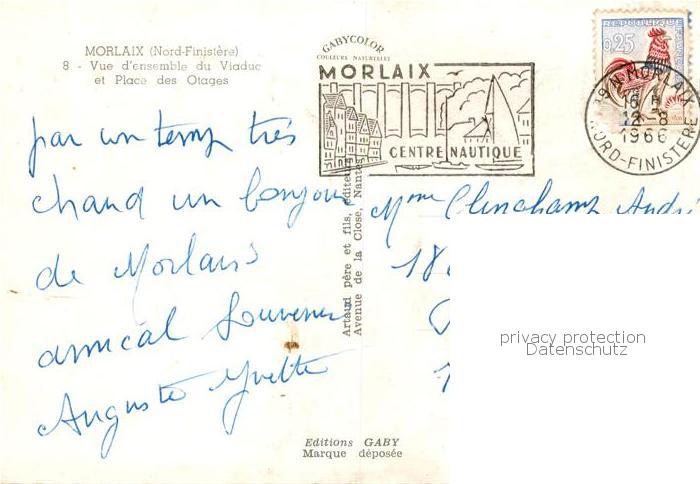 MORLAIX (Nord-Finistère)
8 - Vue d'ensemble du Viaduc
et Place des Otages
par un temps très
chaud un bonjour
de Morlaix
amical Souvenir
Auguste Yvette
GABYCOLOR
COULEURS NATURELLES
MORLAIX
CENTRE NAUTIQUE
REPUBLIQUE
0,25
MORLAIX
16 H
12-8
1966
NORD-FINISTERE
Artaud père et fils, éditeurs
Avenue de la Close, Nantes
Mme Clinchamp André
18
privacy protection
Datenschutz
Editions GABY
Marque déposée